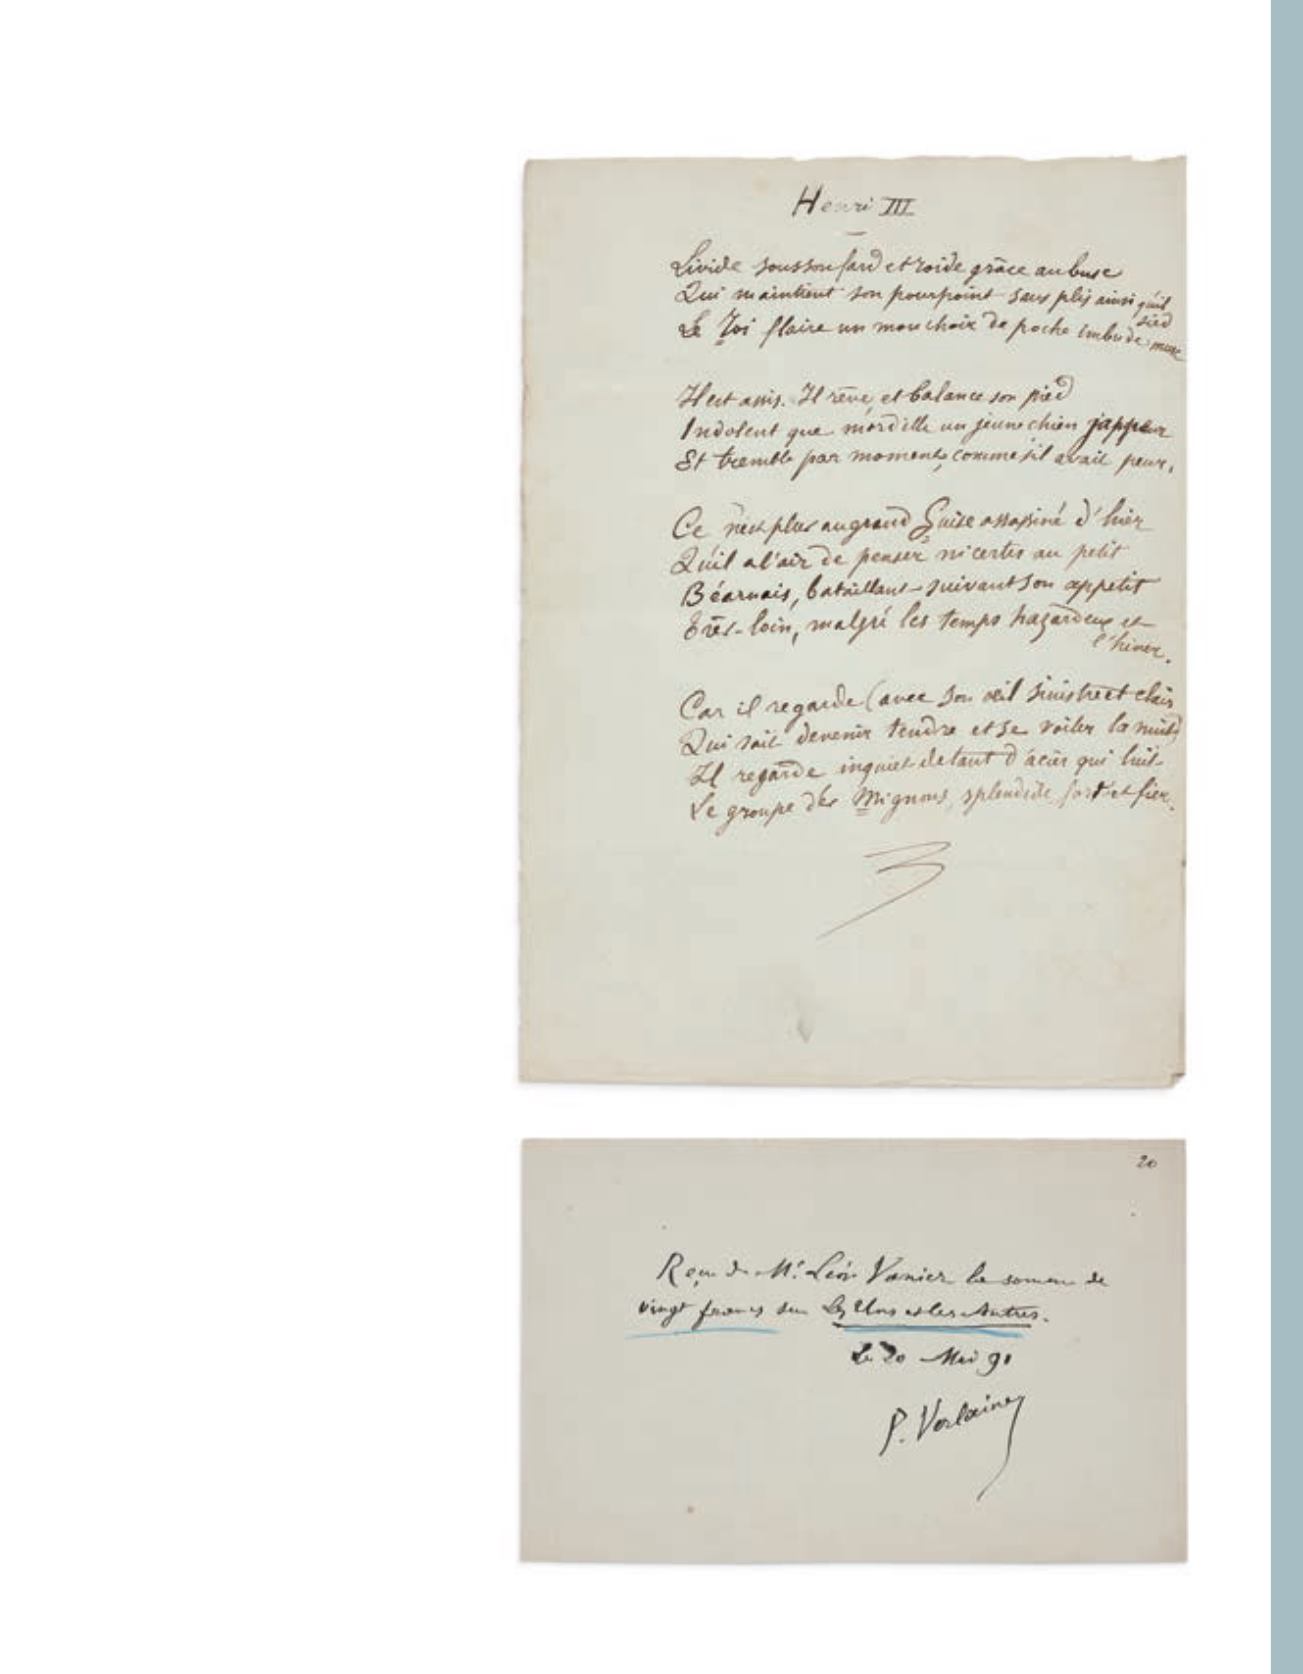 Henri III
Livide sous son fard et roide grâce au busc
Qui maintient son pourpoint sans plis ainsi qu'il sied
Le Roi flaire un mouchoir de poche imbu de musc
Il est assis. Il rêve, et balance son pied
Indolent que mordille un jeune chien jappeur
Et tremble par moments, comme s'il avait peur.
Ce n'est plus au grand Guise assassiné d'hier
Qu'il a l'air de penser ni certes au petit
Béarnais, bataillant suivant son appetit
Très-loin, malgré les temps hazardeux et l'hiver.
Car il regarde (avec son œil sinistre et clair
Qui sait devenir tendre et se voiler la nuit)
Il regarde inquiet de tant d'acier qui luit
Le groupe des Mignons, splendide, fort et fier.
20
Reçu de Mr. Léon Vanier la somme de
vingt francs sur Les Uns et les Autres.
Le 20 Mai 91
P. Verlaine